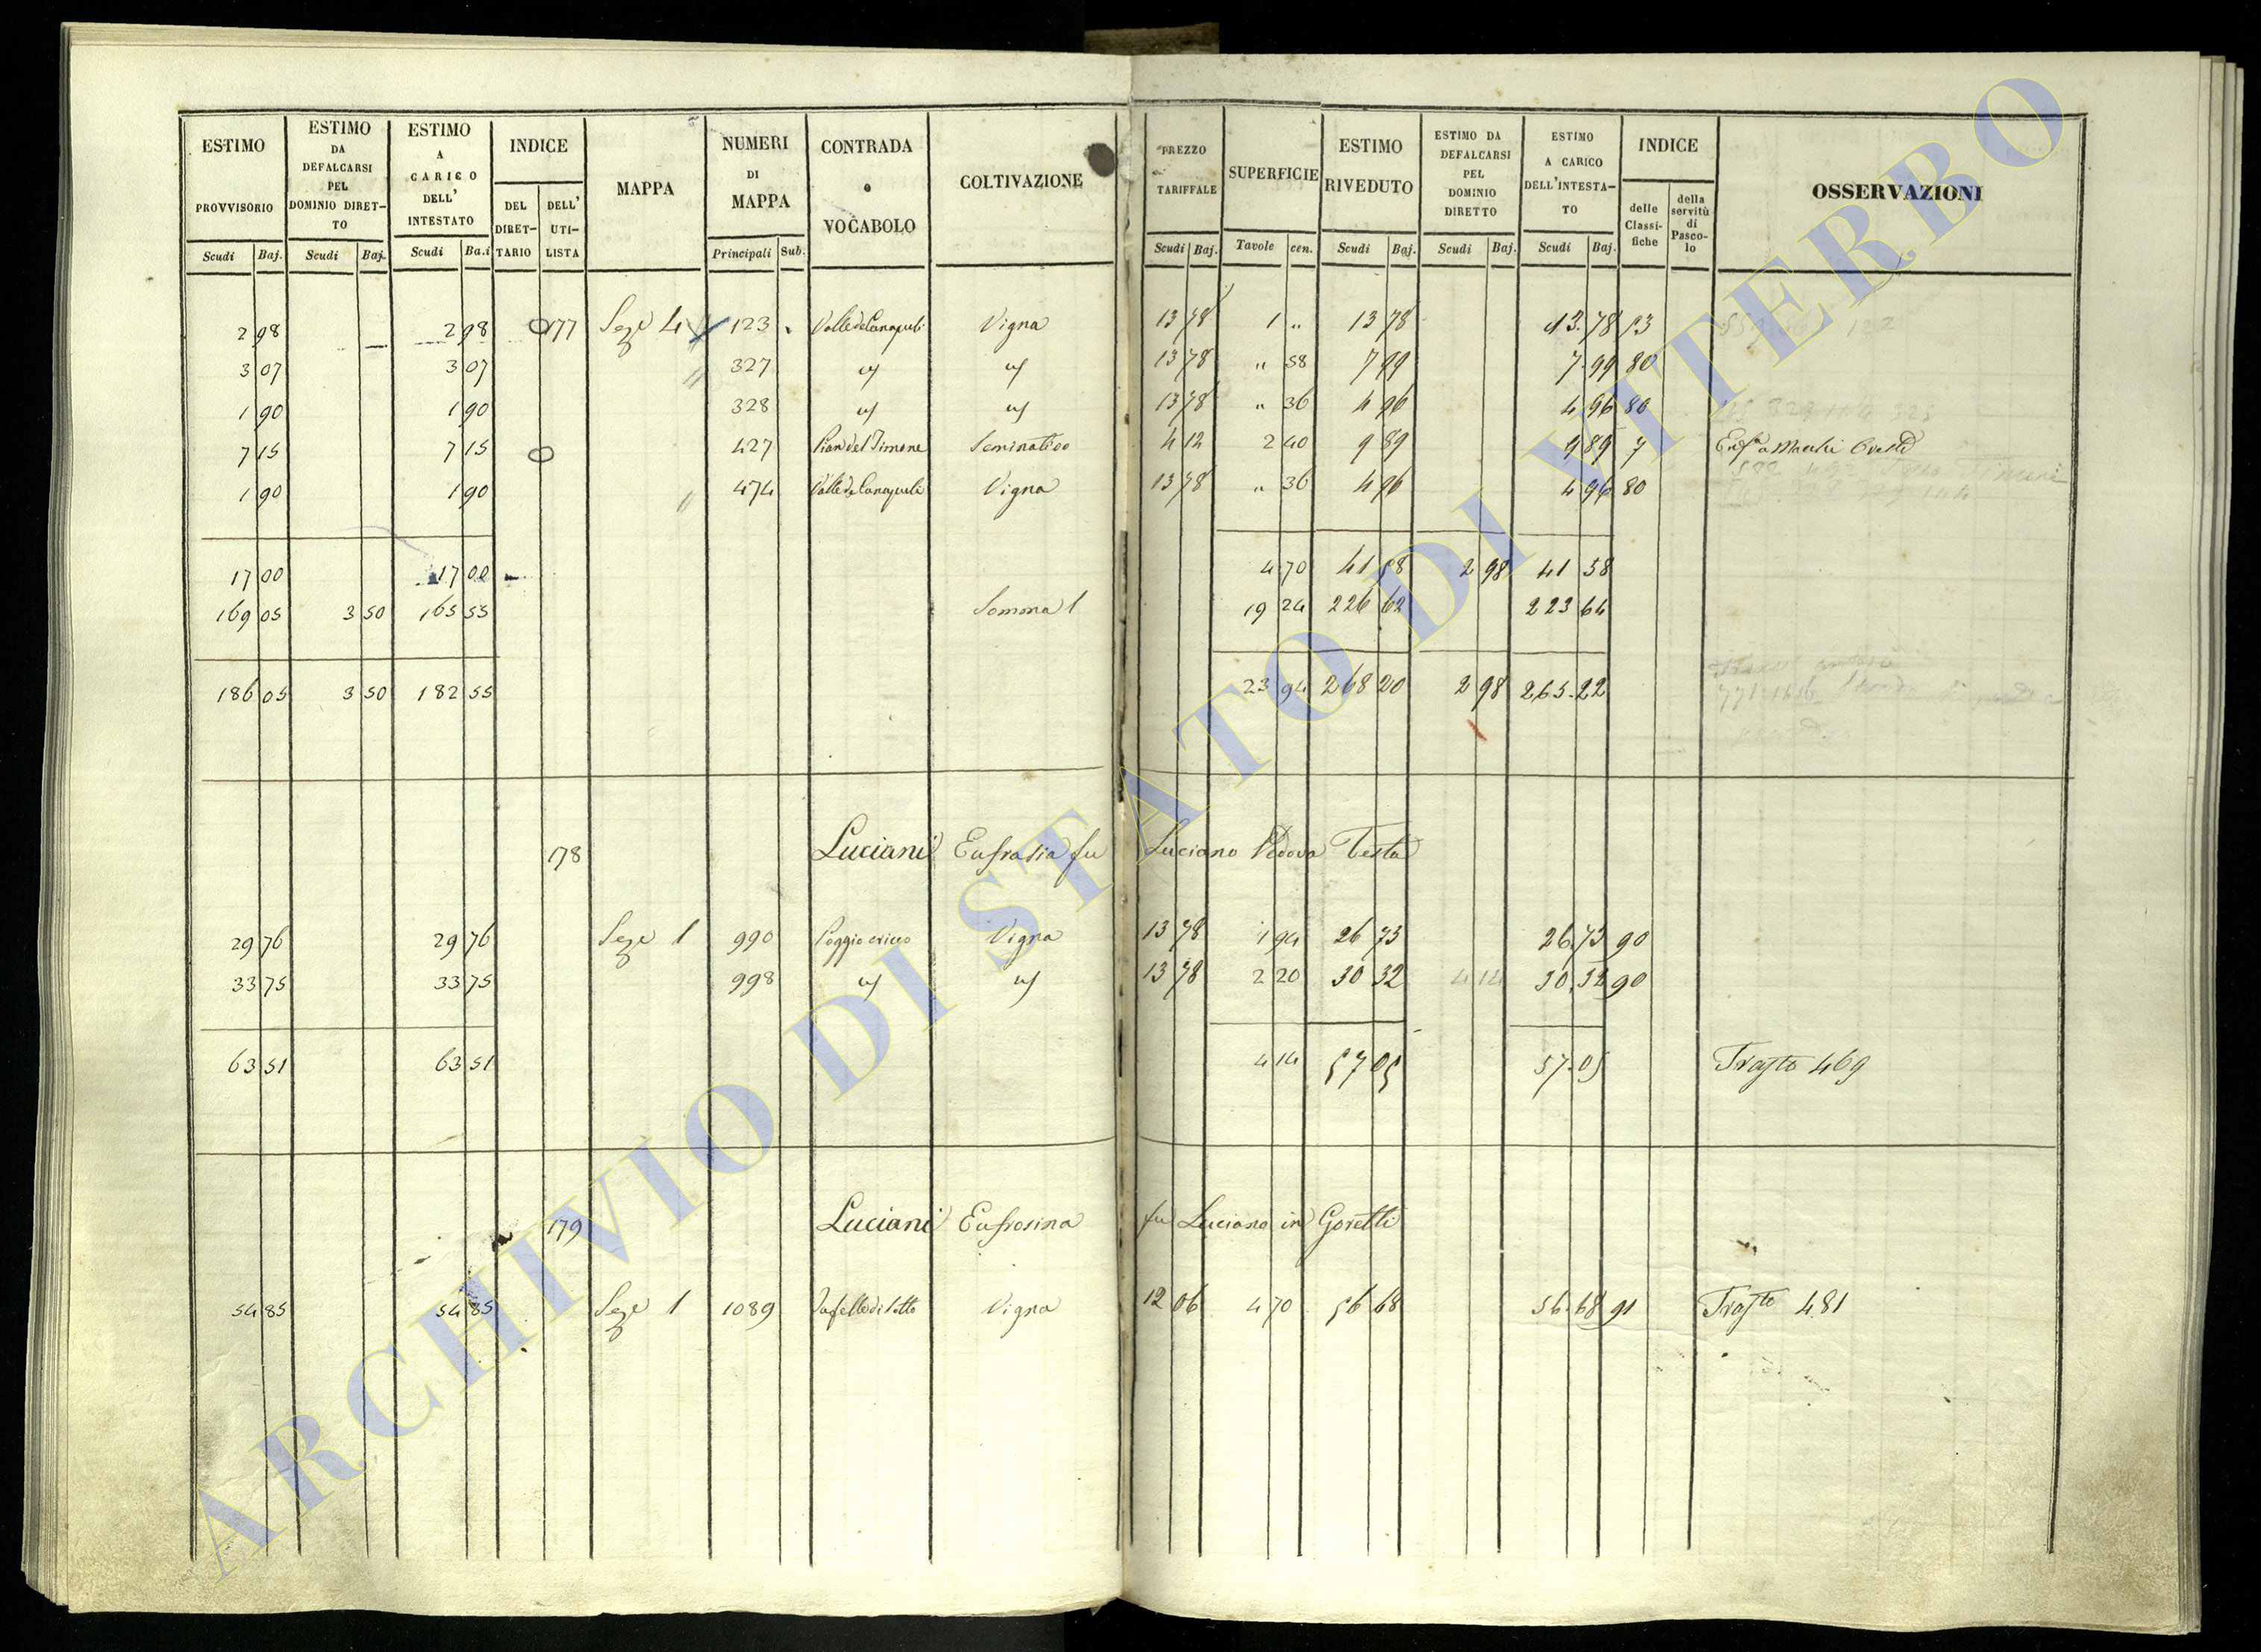 ESTIMO PROVVISORIO Scudi Baj.
ESTIMO DA DEFALCARSI PEL DOMINIO DIRETTO Scudi Baj.
ESTIMO A CARICO DELL' INTESTATO Scudi Ba.i
INDICE DEL DIRETTARIO DELL' UTILISTA
MAPPA
NUMERI DI MAPPA Principali Sub.
CONTRADA o VOCABOLO
COLTIVAZIONE
PREZZO TARIFFALE Scudi Baj.
SUPERFICIE Tavole cen.
ESTIMO RIVEDUTO Scudi Baj.
ESTIMO DA DEFALCARSI PEL DOMINIO DIRETTO Scudi Baj.
ESTIMO A CARICO DELL'INTESTATO Scudi Baj.
INDICE delle Classifiche della servitù di Pascolo
OSSERVAZIONI
2 98 2 98 177 Seze 4 123 Valle de Canapuli Vigna 13 78 1 " 13 78 13.78
3 07 3 07 327 13 78 " 58 7 99 7.99 80
1 90 1 90 328 13 78 " 36 4 96 4 96 80
7 15 7 15 427 Pian del Timone Seminativo 4 12 2 40 9 89 9 89 7
1 90 1 90 474 Valle de Canapuli Vigna 13 78 " 36 4 96 4 96 80
17 00 17 00 4 70 41 58 2 98 41 58
169 05 3 50 165 55 19 24 226 62 223 64
186 05 3 50 182 55 23 94 268 20 2 98 265.22
178 Luciani Eufrasia fu Luciano Vedova Testa
29 76 29 76 Seze 1 990 Vigna 13 78 1 94 26 73 26.73 90
33 75 33 75 998 13 78 2 20 30 32 4 14 30.32 90
63 51 63 51 4 14 57 05 57.05 Trasto 469
179 Luciani Eufrosina fu Luciano in Goretti
54 85 54 85 Seze 1 1089 Vigna 12 06 4 70 56 68 56.68 91 Trasto 481
ARCHIVIO DI STATO DI VITERBO